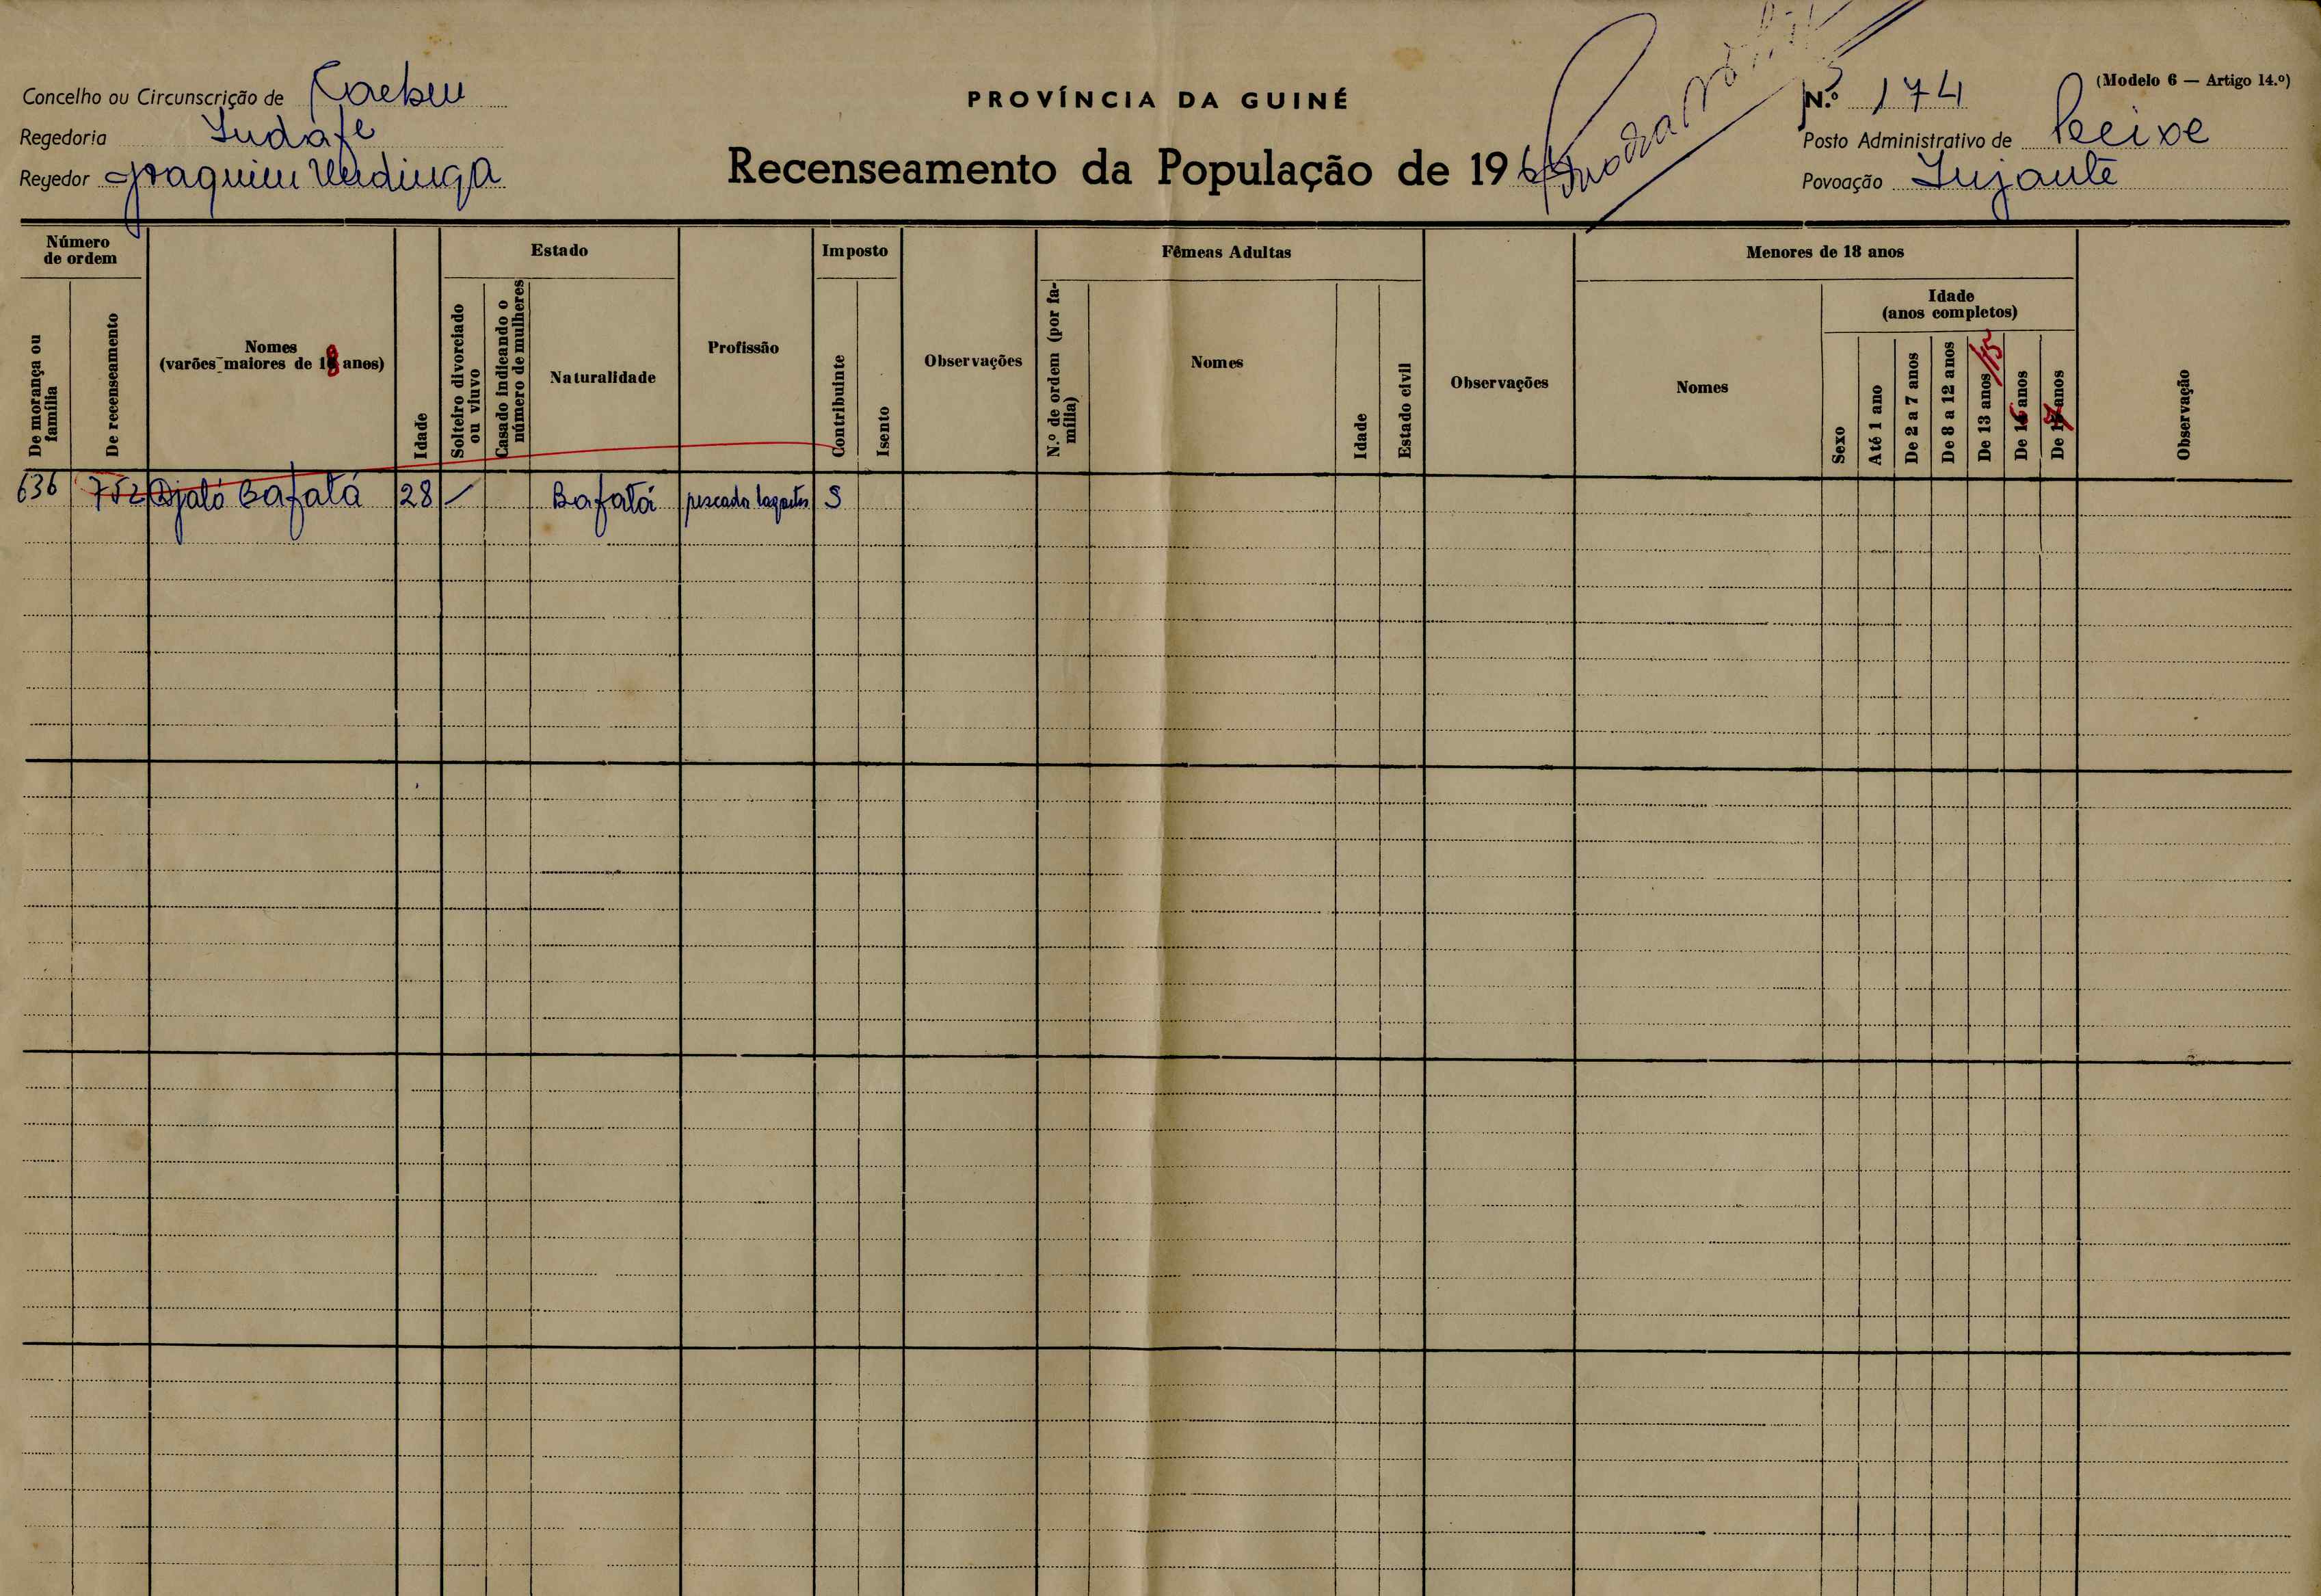 Concelho ou Circunscrição de
PROVÍNCIA DA GUINÉ
N.º 174
(Modelo 6 — Artigo 14.º)
Regedoria Indafe
Posto Administrativo de Peixe
Regedor Joaquim
Recenseamento da População de 196
Povoação
Número de ordem
De morança ou família
De recenseamento
Nomes
(varões maiores de 18 anos)
Idade
Estado
Solteiro divorciado ou viuvo
Casado indicando o número de mulheres
Naturalidade
Profissão
Imposto
Contribuinte
Isento
Observações
Fêmeas Adultas
N.º de ordem (por família)
Nomes
Idade
Estado civil
Observações
Menores de 18 anos
Nomes
Idade
(anos completos)
Sexo
Até 1 ano
De 2 a 7 anos
De 8 a 12 anos
De 13 anos /15
De 16 anos
De 17 anos
Observação
636 752 Djaló Bafatá 28 Bafatá pescador lagartos S